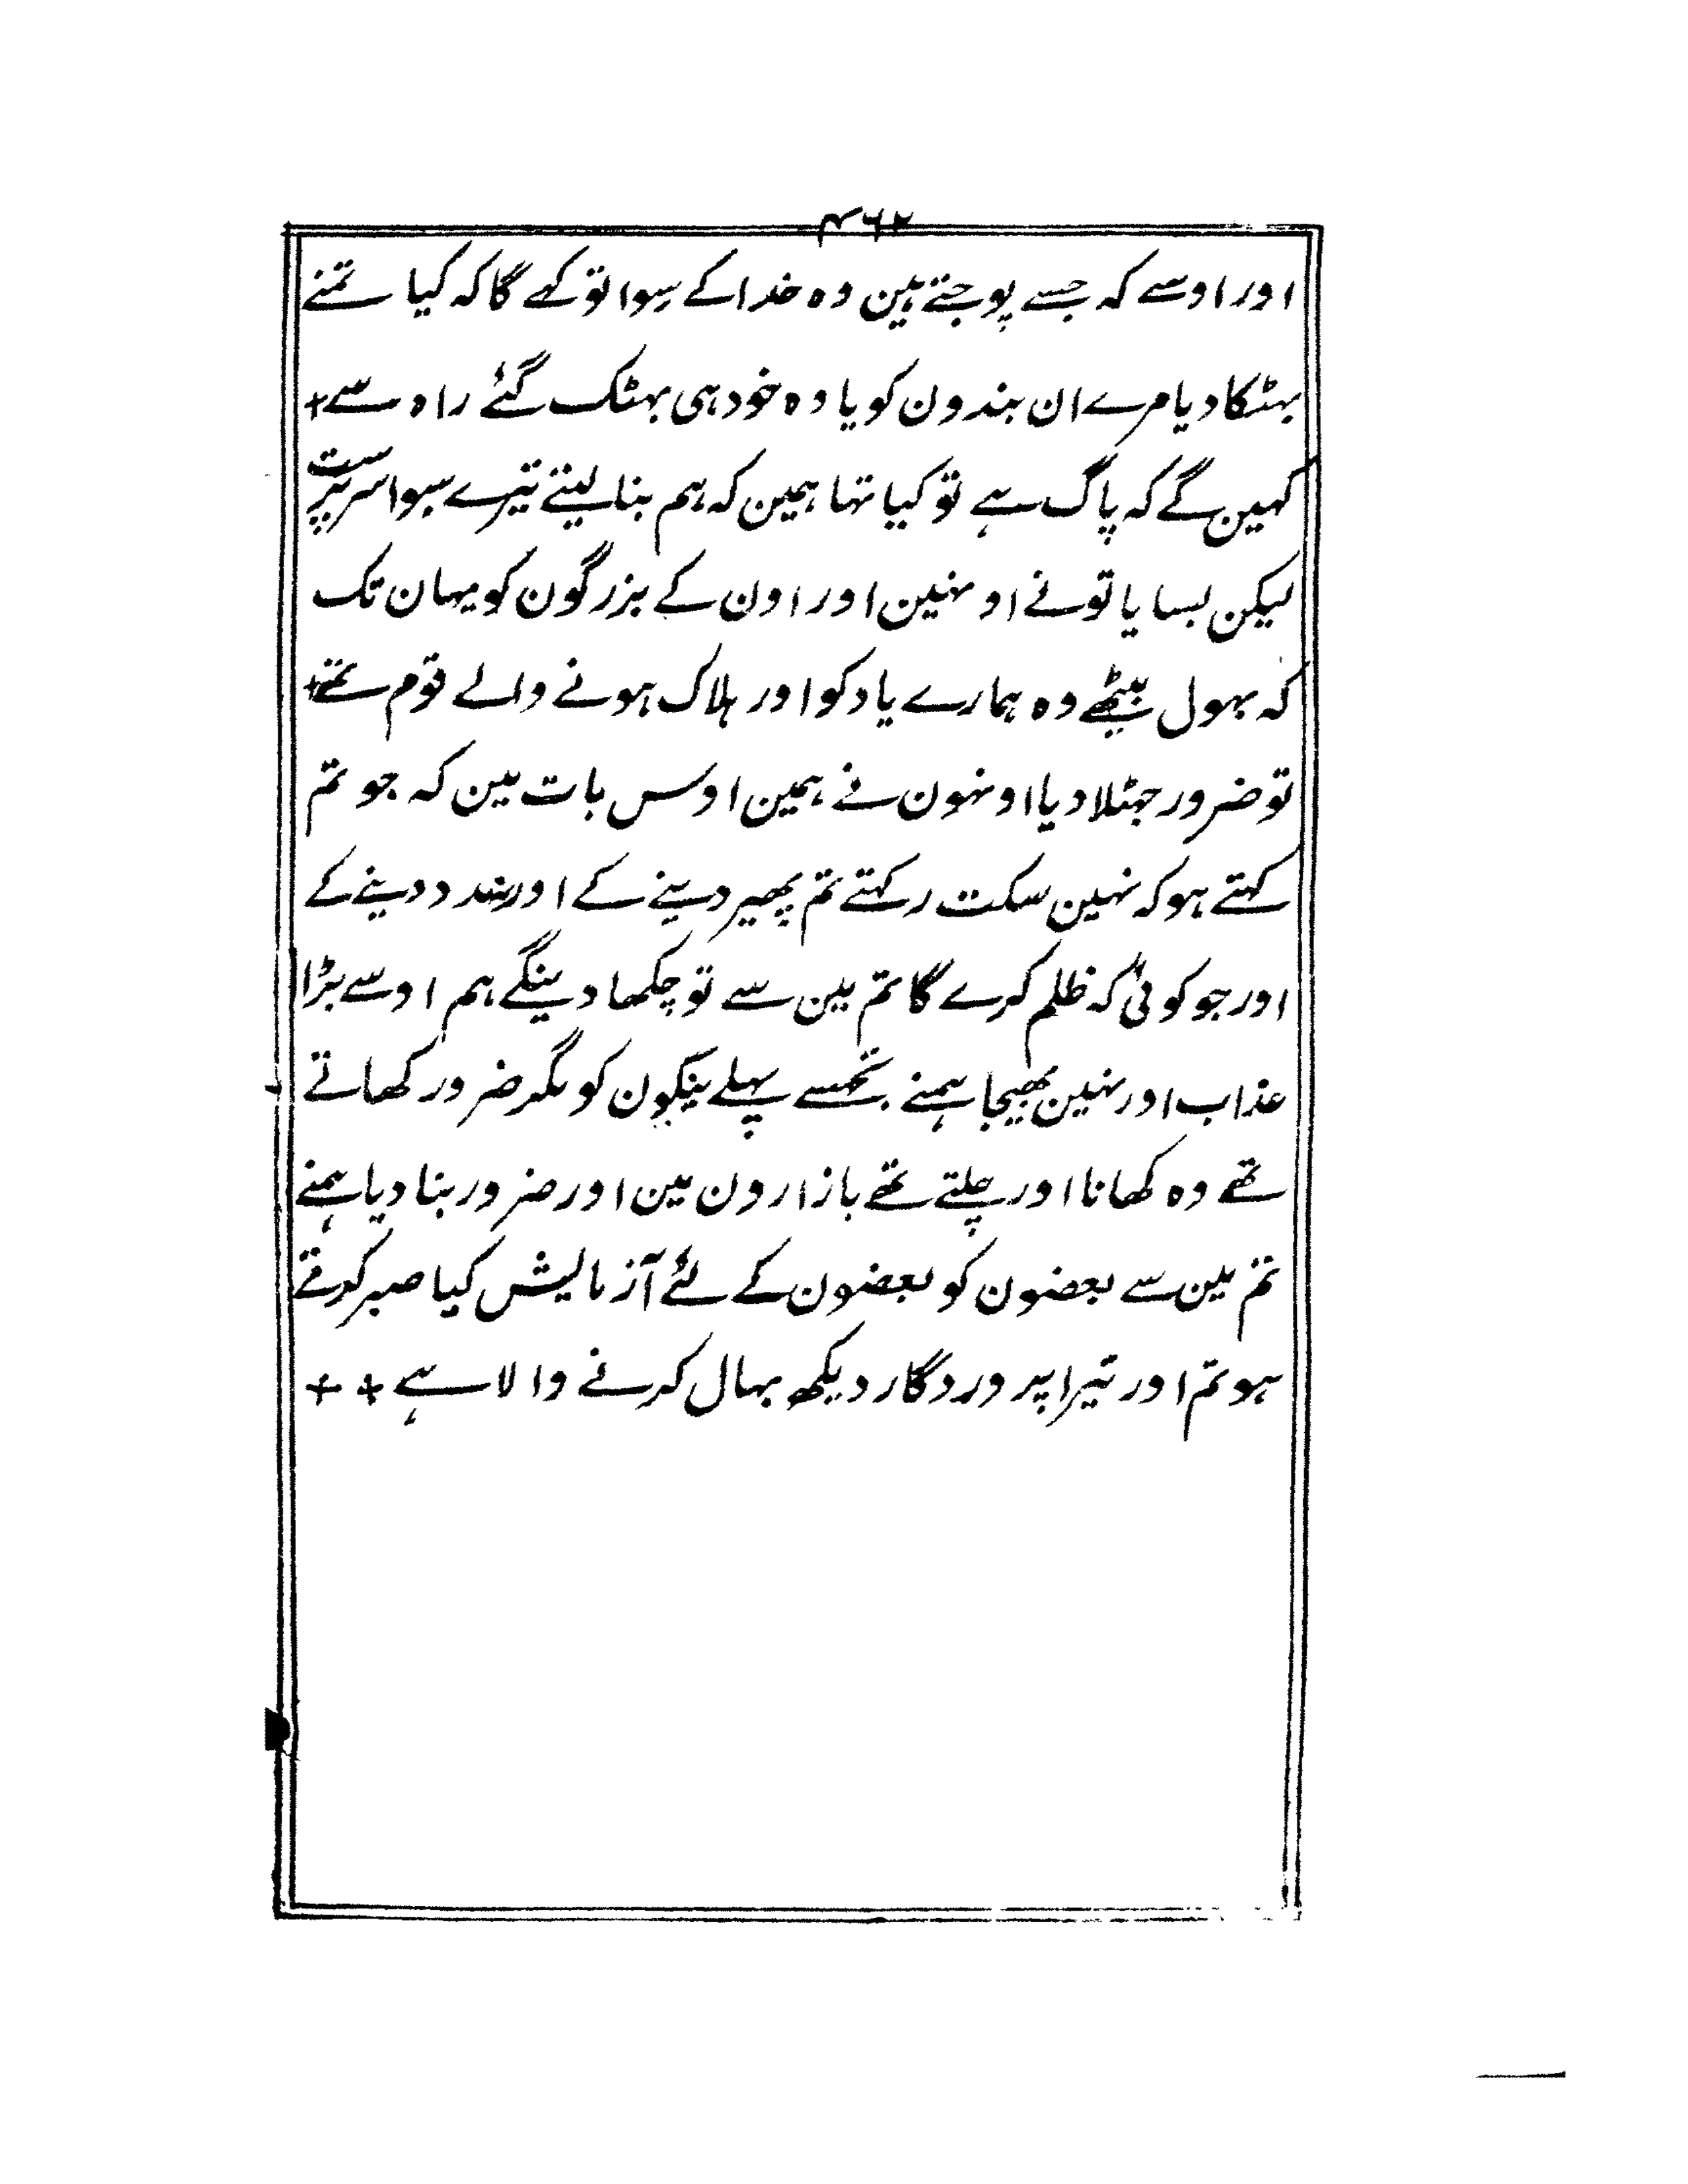 ۴۶۲
اور اوسے کہ جسے پوجتے ہین وہ خدا کے سِوا تو کہے گا کہ کیا تمنے
بہٹکا دیا مرے ان بندون کو یا وہ خود ہی بہٹک گئے راہ سے +
کہین گے کہ پاگ ہے تو کیا تہا ہمین کہ ہم بنا لیتے تیرے سوا سرپرست
لیکن بسایا تونے اونہین اور اون کے بزرگون کو یہان تک
کہ بہول بیٹھے وہ ہمارے یاد کو اور ہلاک ہونے والے قوم تھے +
تو ضرور جہٹلا دیا اونہون نے ہمین اوس بات مین کہ جو تم
کہتے ہو کہ نہین سکت رکہتے تم پھیر دینے کے اور نہ مدد دینے کے
اور جو کوئی کہ ظلم کرے گا تم مین سے تو چکھا دینگے ہم اوسے بڑا
عذاب اور نہین بھیجا ہمنے تجھسے پہلے پیکون کو مگر ضرور کھاتے
تھے وہ کھانا اور چلتے تھے بازارون مین اور ضرور بنا دیا ہمنے
تم مین سے بعضون کو بعضون کے لئے آزمالیش کیا صبر کرتے
ہو تم اور تیرا پروردگار دیکھ بہال کرنے والا ہے + +